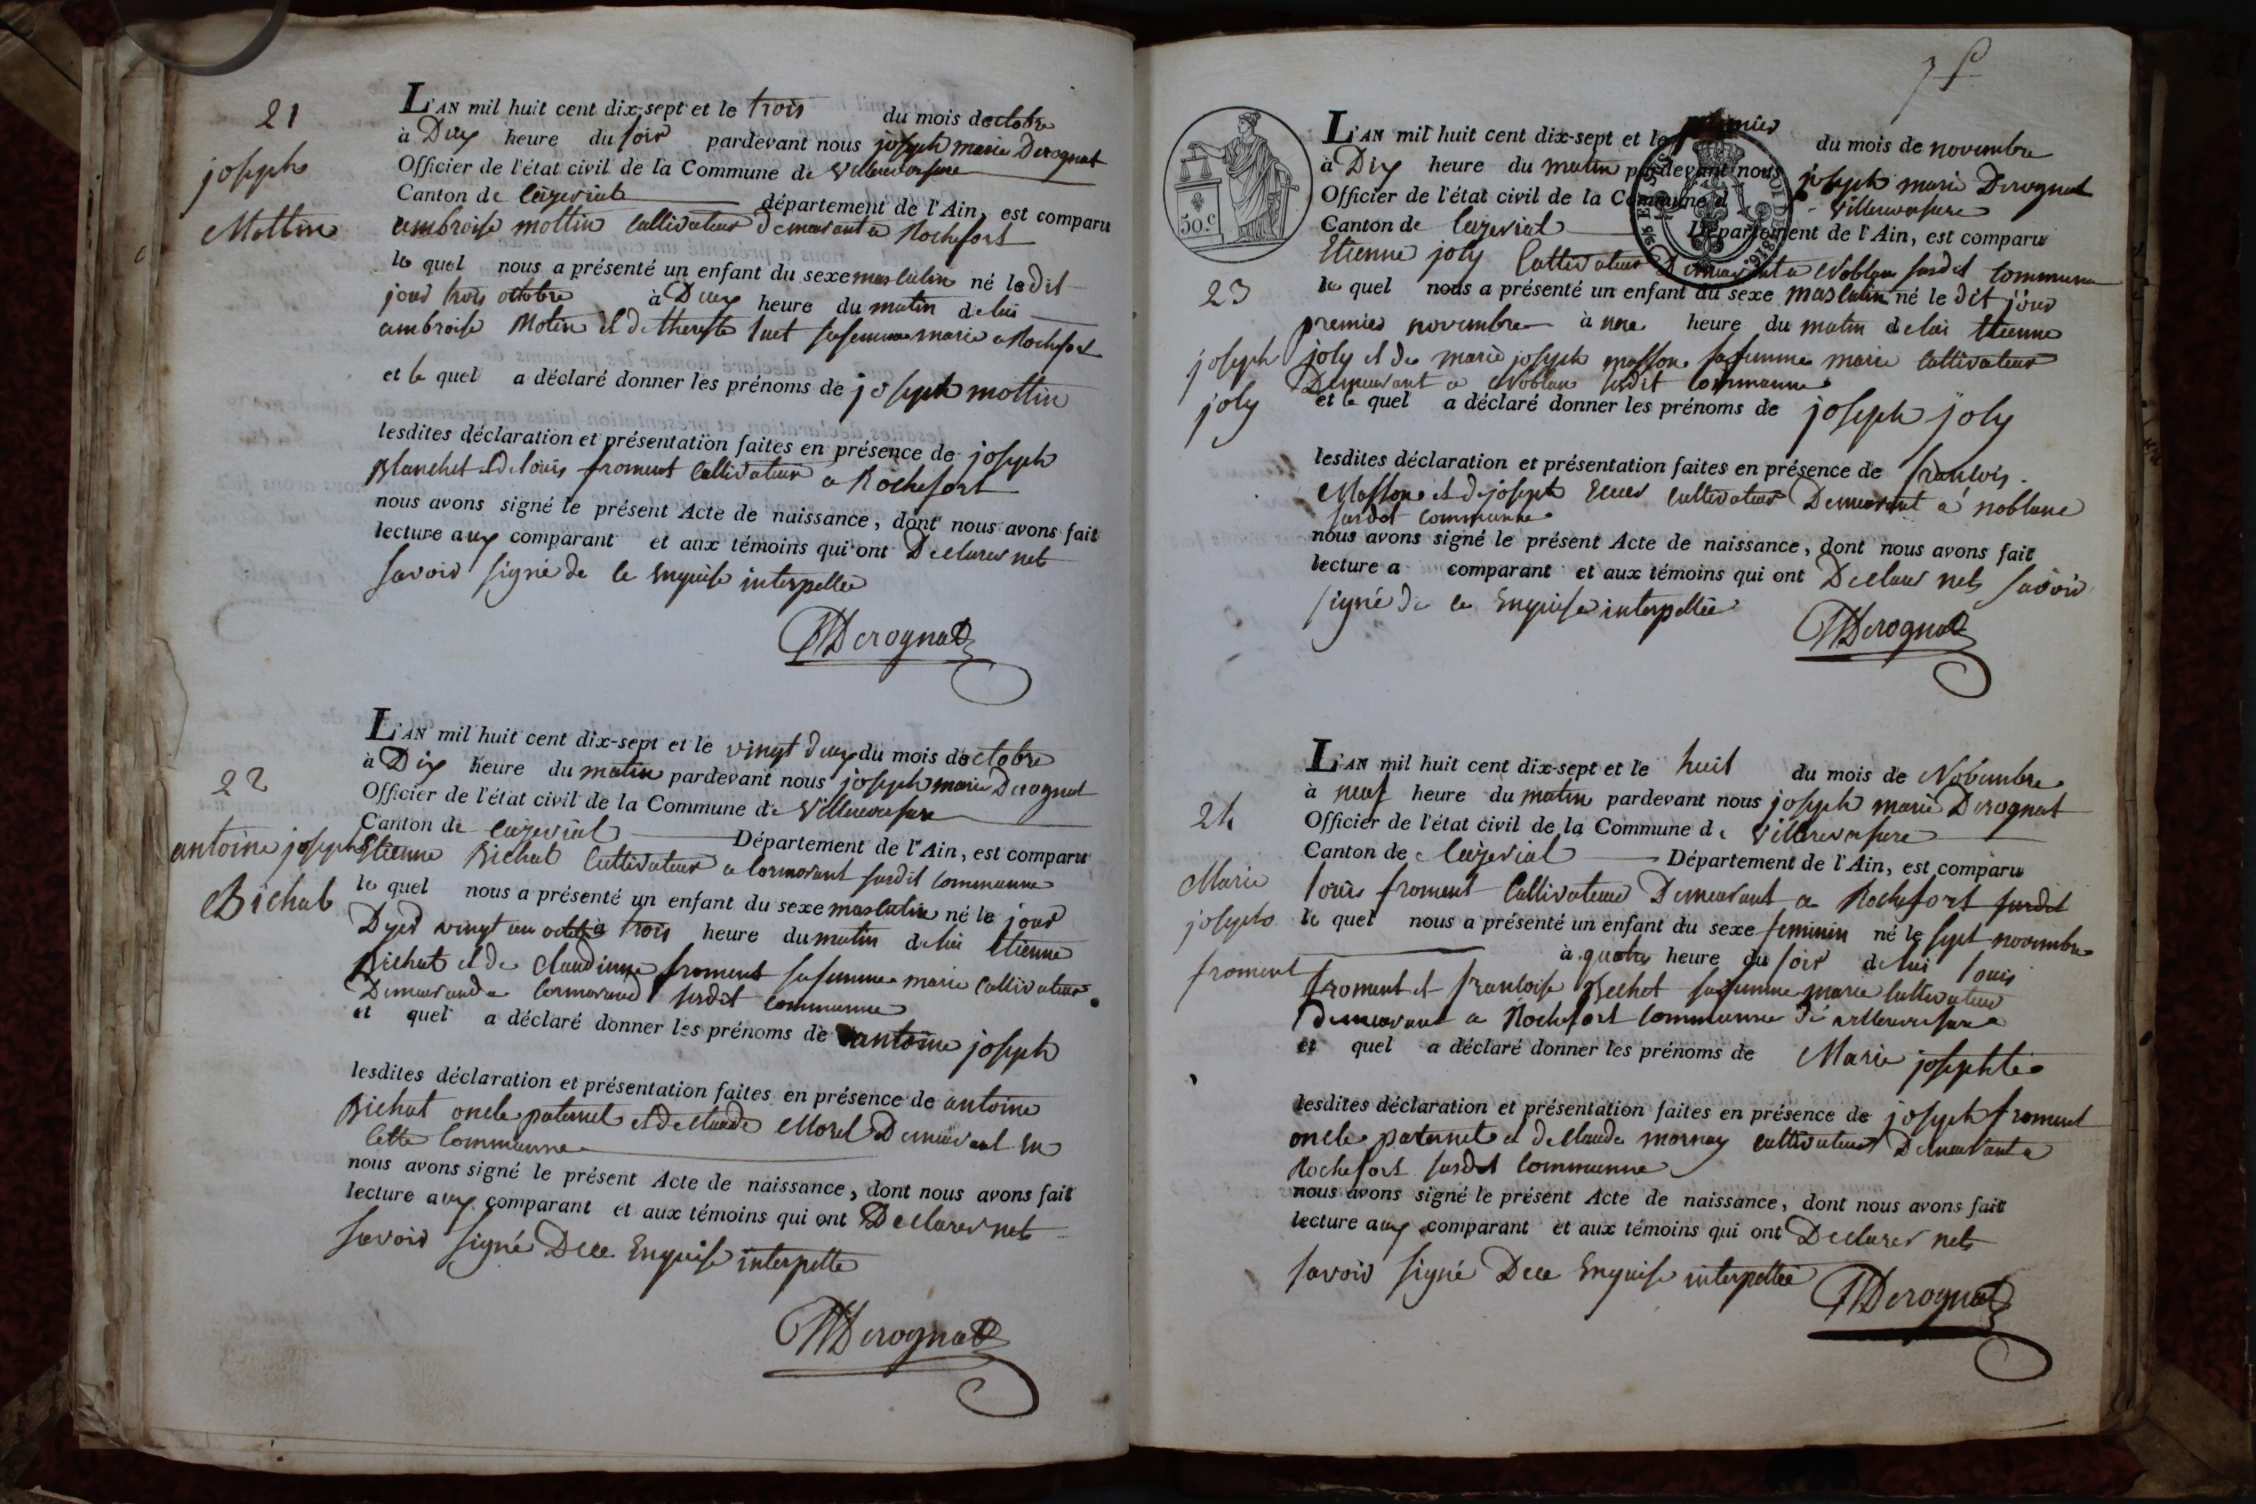 21
joseph
Mottin
L'AN mil huit cent dix-sept et le trois du mois doctobre
à Deux heure du soir pardevant nous joseph marie Derognat
Officier de l'état civil de la Commune de villereversure
Canton de Ceyzeriat département de l'Ain, est comparu
ambroise mottin Cultivateur Demeurant a Rochefort
le quel nous a présenté un enfant du sexe masculin né le dit
jour trois octobre à Deux heure du matin de lui
ambroise Motin et de therese luet sa femme marie a Rochefort
et le quel a déclaré donner les prénoms de joseph mottin
lesdites déclaration et présentation faites en présence de joseph
Blanchet et de louis froment Cultivateur a Rochefort
nous avons signé le présent Acte de naissance, dont nous avons fait
lecture aux comparant et aux témoins qui ont Declarer net
savoir signé de ce Enquise interpellée
JMDerognat
22
antoine joseph
Bichat
L'AN mil huit cent dix-sept et le vingt deux du mois doctobre
à Dix heure du matin pardevant nous joseph marie Derognat
Officier de l'état civil de la Commune de villereversure
Canton de Ceyzeriat Département de l'Ain, est comparu
Etienne Bichat Cultivateur a Cormorant surdit Communne
le quel nous a présenté un enfant du sexe masculin né le jour
Dyer vingt un octobre à trois heure du matin de lui Etienne
Bichat et de Claudinne froment sa femme marie Cultivateur
Demeurand a Cormorand surdit Communne
et quel a déclaré donner les prénoms de antoine joseph
lesdites déclaration et présentation faites en présence de antoine
Bichat oncle paternel et de Claude Morel Demeurant en
Cette Communne
nous avons signé le présent Acte de naissance, dont nous avons fait
lecture aux comparant et aux témoins qui ont Declarer net
savoir signé Dece Enquise interpelle
JMDerognat
50.c
L'AN mil huit cent dix-sept et le premier du mois de novembre
à Dix heure du matin pardevant nous joseph marie Derognat
Officier de l'état civil de la Commune d villereversure
Canton de Ceyzeriat Département de l'Ain, est comparu
Etienne joly Cultivateur Demeurant a Noblan surdit Communne
23
le quel nous a présenté un enfant du sexe masculin né le dit jour
premier novembre à une heure du matin de lui Etienne
joseph
joly
joly et de marie joseph masson sa femme marie Cultivateur
Demeurant a Noblan surdit Communne
et le quel a déclaré donner les prénoms de joseph joly
lesdites déclaration et présentation faites en présence de francois
Masson et de joseph cultivateur Demeurant a noblane
surdit Communne
nous avons signé le présent Acte de naissance, dont nous avons fait
lecture a comparant et aux témoins qui ont Declarer nets savoir
signé de ce Enquise interpellée
JMDerognat
24
Marie
josephte
froment
L'AN mil huit cent dix-sept et le huit du mois de Novembre
à neuf heure du matin pardevant nous joseph marie Derognat
Officier de l'état civil de la Commune de villereversure
Canton de Ceyzeriat Département de l'Ain, est comparu
louis froment Cultivateur Demeurant a Rochefort surdit
le quel nous a présenté un enfant du sexe feminin né le sept novembre
à quatre heure du soir de lui louis
froment et francoise Bechet sa femme marie Cultivateur
Demeurant a Rochefort Communne de villereversure
et quel a déclaré donner les prénoms de Marie josephte
lesdites déclaration et présentation faites en présence de joseph froment
oncle paternel et de Claude mornay cultivateur Demeurant a
Rochefort surdit Communne
nous avons signé le présent Acte de naissance, dont nous avons fait
lecture aux comparant et aux témoins qui ont Declarer nets
savoir signé Dece Enquise interpellée
JMDerognat